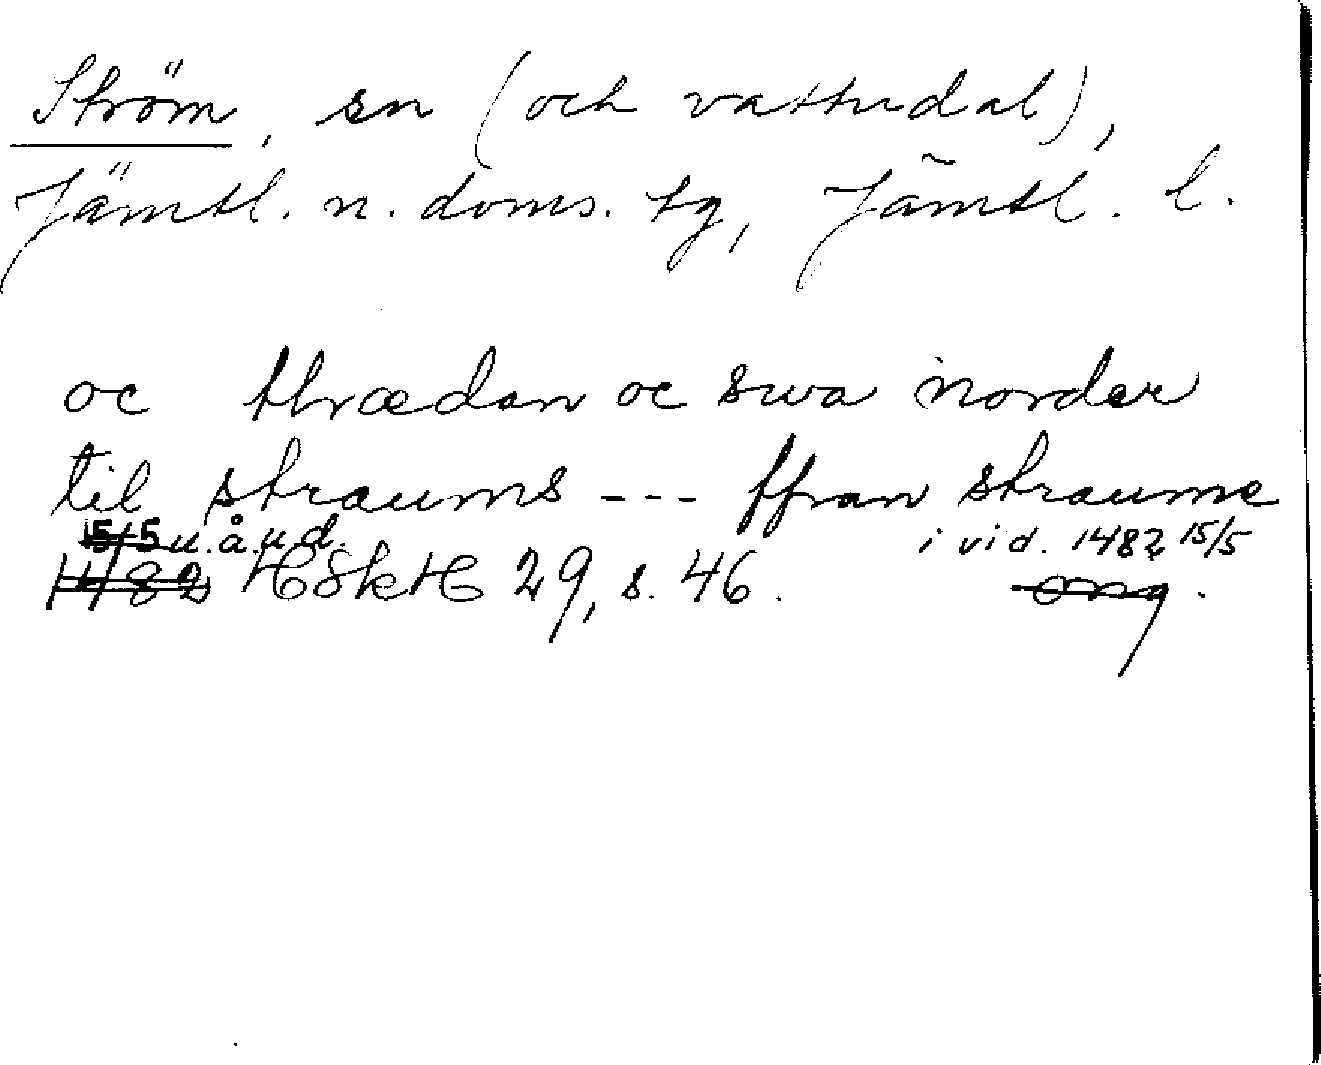 Ström, sn (och vattudal),
Jämtl. n. doms. tg, Jämtl. l.
oc thrædan oc swa norder
til straums --- ffran straume
15/5 u.å.u.d. i vid. 1482 15/5
1482 HSkH 29, s. 46. orig.